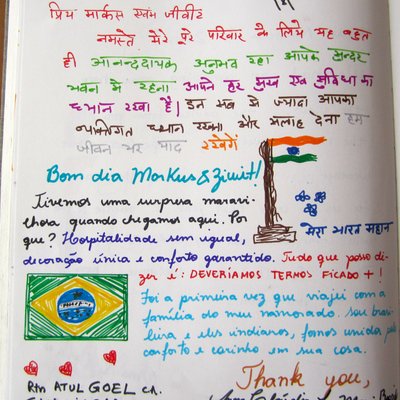 प्रिय मार्कस एवम जीवीट
नमस्ते मेरे पूरे परिवार के लिये यह बहुत
ही आनन्ददायक अनुभव रहा आपके सुन्दर
भवन मे रहना आपने हर सुख एवं सुविधा का
ध्यान रखा है। इन सब से ज्यादा आपका
व्यक्तिगत ध्यान रखना और सलाह देना हम
जीवन भर याद रखेगें
Bom dia Markus & Zivit!
Tivemos uma surpresa maravi-
lhosa quando chegamos aqui. Por
que? Hospitalidade sem igual,
मेरा भारत महान
decoração única e conforto garantido. Tudo que posso di-
zer é: DEVERÍAMOS TERMOS FICADO + !
Foi a primeira vez que viajei com a
família do meu namorado. Sou brasi-
leira e eles indianos, fomos unidos pelo
conforto e carinho em sua casa.
Thank you,
Rtn ATUL GOEL CA.